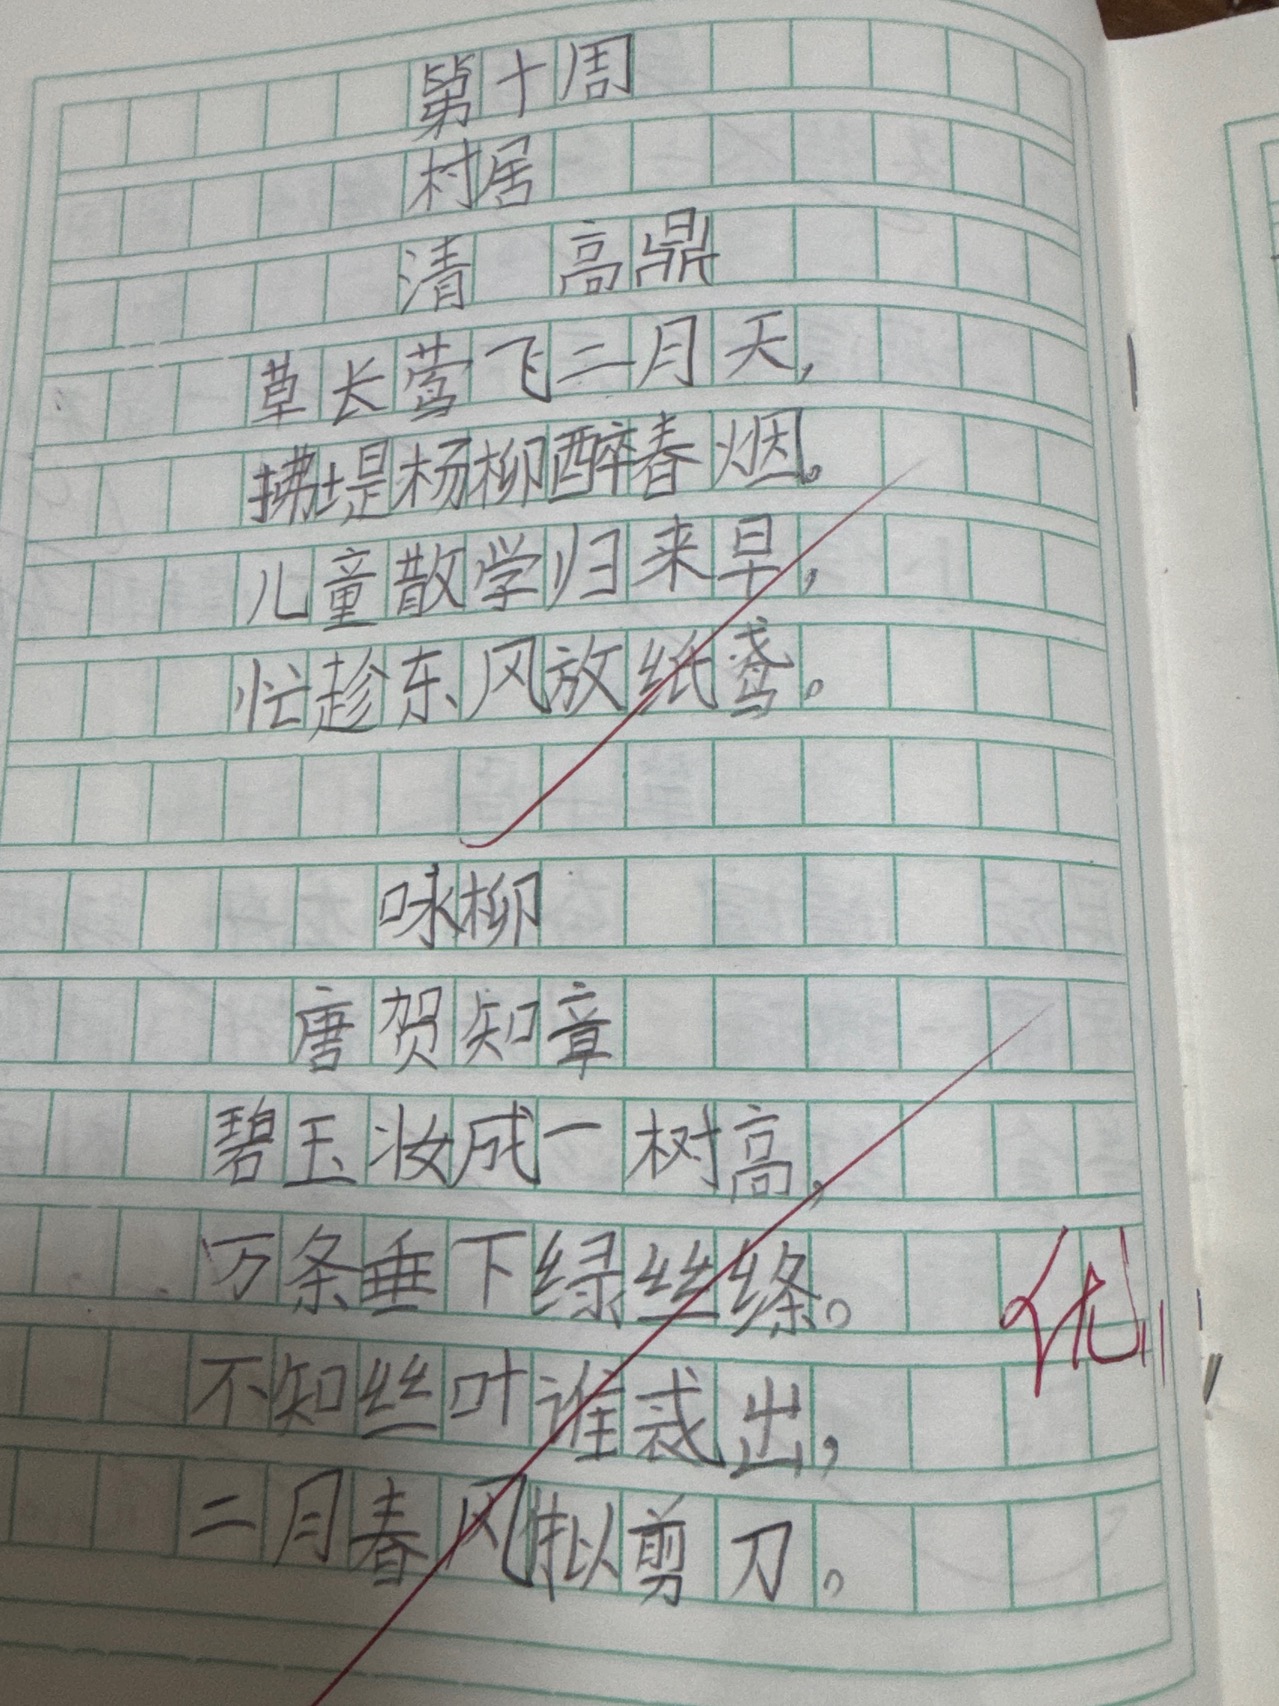 第十周
村居
清 高鼎
草长莺飞二月天,
拂堤杨柳醉春烟。
儿童散学归来早,
忙趁东风放纸鸢。
咏柳
唐贺知章
碧玉妆成一树高,
万条垂下绿丝绦。
不知丝叶谁裁出,
二月春风拟剪刀。
优